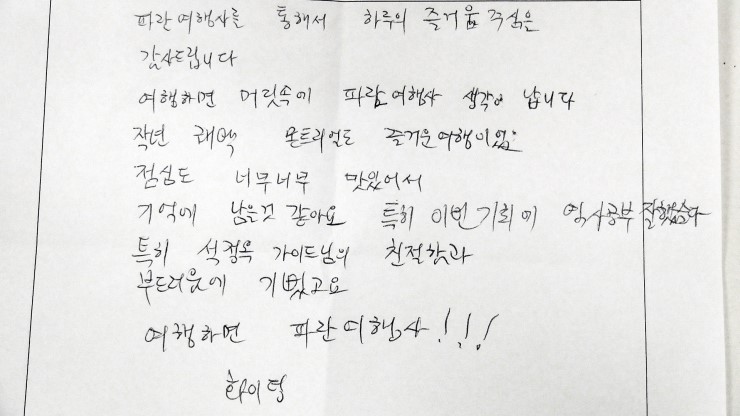 파란여행사를 통해서 하루의 즐거움 주심은
감사드립니다
여행하면 머릿속에 파란여행사 생각이 납니다
작년 퀘백 몬트리얼도 즐거운여행이었
점심도 너무너무 맛있어서
기억에 남은것 같아요 특히 이번기회에 역사공부 잘했습니다
특히 석정옥 가이드님의 친절함과
부드러움에 기뻤고요
여행하면 파란여행사!!!
화이팅